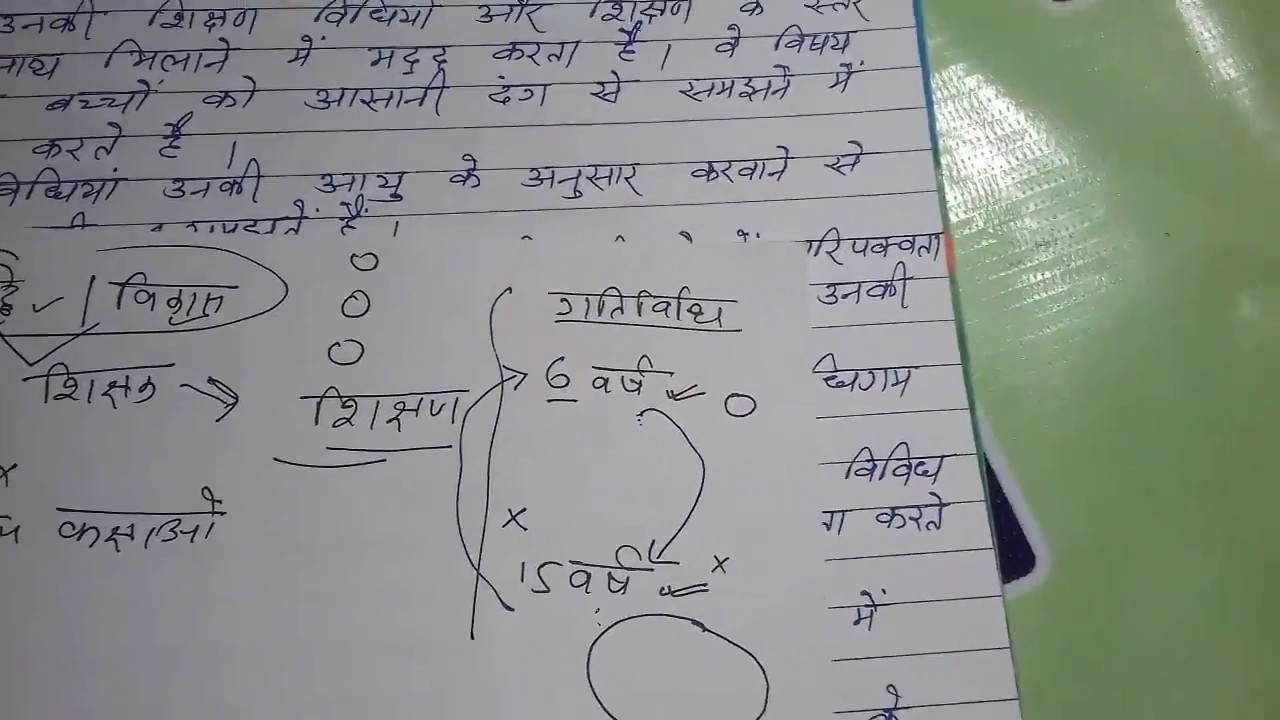 उनकी शिक्षण विधियों और शिक्षण के स्तर
साथ मिलाने में मदद करता है। वे विषय
बच्चों को आसानी ढंग से समझने में
करते है।
उनकी आयु के अनुसार करवाने से
हैं।
रिपक्वता
उनकी
विगम
विविध
ग करते
में
के
है / विगम
शिक्षक → शिक्षण
कक्षाओं
गतिविधि
6 वर्ष
15 वर्ष